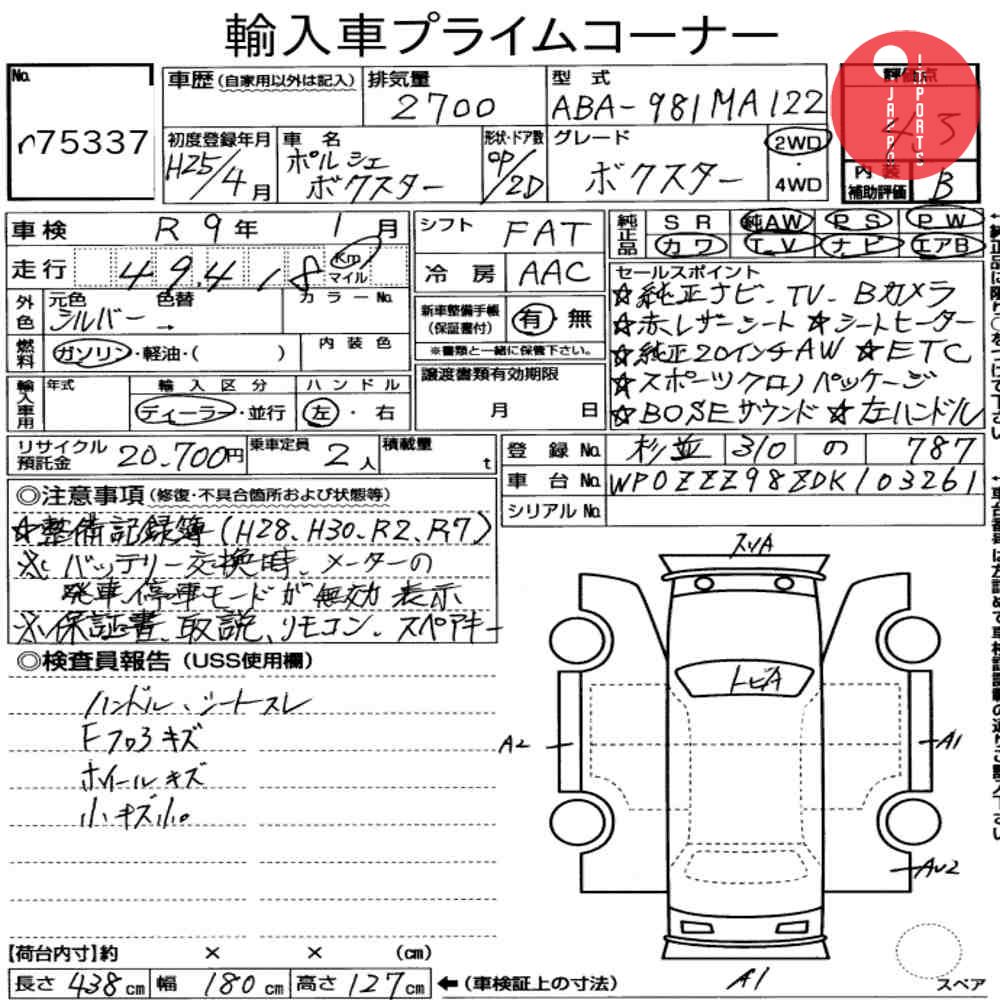 輸入車プライムコーナー
No.
75337
車歴 (自家用以外は記入)
排気量
2700
型式
ABA-981MA122
評価点
4.5
JAPAN
IMPORTS
初度登録年月
H25/4月
車名
ポルシェ
ボクスター
形状・ドア数
OP/2D
グレード
ボクスター
2WD
・
4WD
内装
補助評価
B
車検 R9年 1月
走行 49,418 Km マイル
シフト FAT
冷房 AAC
純正品
SR 純AW PS PW
カワ T.V ナビ エアB
外色
元色 シルバー →
色替
カラーNo.
燃料
ガソリン・軽油・( )
内装色
新車整備手帳
(保証書付)
有・無
※書類と一緒に保管下さい。
セールスポイント
☆純正ナビ-TV-Bカメラ
☆赤レザーシート ☆シートヒーター
☆純正20インチAW ☆ETC
☆スポーツクロノパッケージ
☆BOSEサウンド ☆左ハンドル
輸入車用
年式
輸入区分
ディーラー・並行
ハンドル
左・右
譲渡書類有効期限
月 日
リサイクル
預託金
20,700円
乗車定員
2人
積載量
t
登録No. 杉並 310 の 787
車台No. WP0ZZZ98ZDK103261
シリアルNo.
◎注意事項 (修復・不具合箇所および状態等)
☆整備記録簿(H28、H30、R2、R7)
※バッテリー交換時、メーターの
発車、停車モードが無効表示
※保証書、取説、リモコン、スペアキー
◎検査員報告 (USS使用欄)
ハンドル、シートスレ
Fフロ3キズ
ホイールキズ
小キズ小凹
スリA
トビA
A2
A1
AU2
A1
スペア
【荷台内寸】約 × × (cm)
長さ 438cm 幅 180cm 高さ 127cm ←(車検証上の寸法)